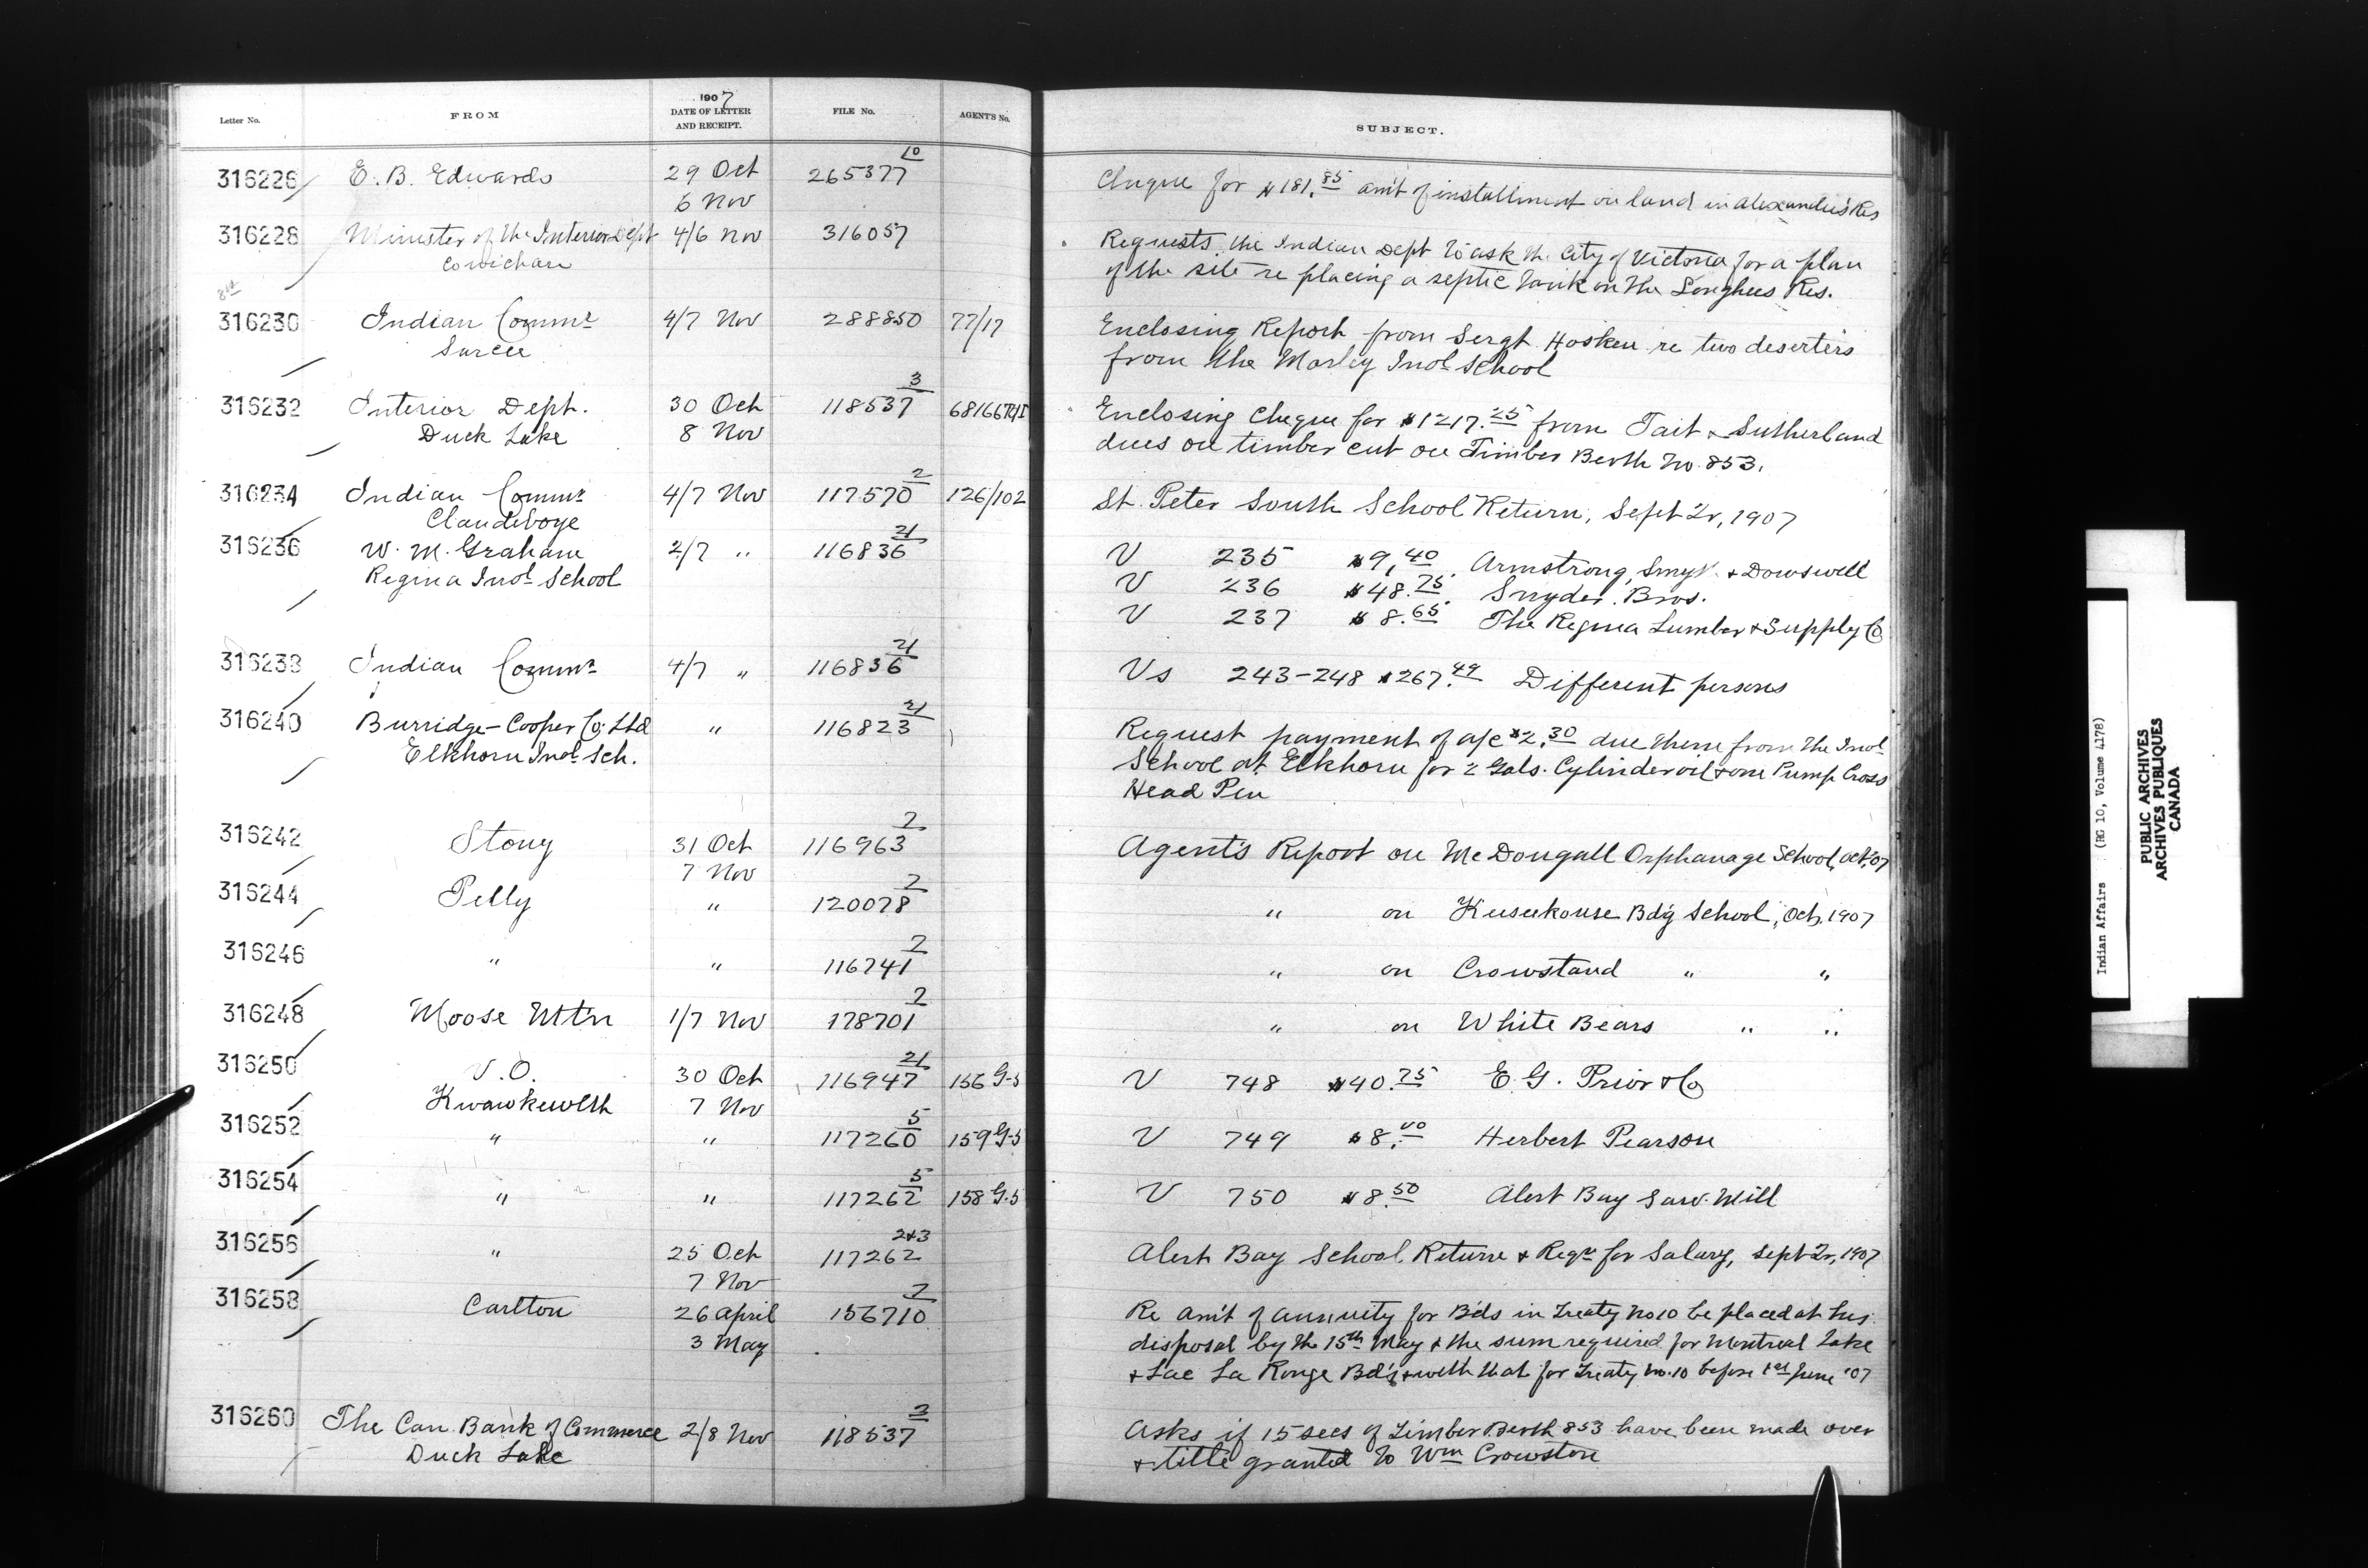 Letter No. FROM 1907 DATE OF LETTER AND RECEIPT. FILE No. AGENT'S No. SUBJECT.
316226 E. B. Edwards 29 Oct 265377 10 Cheque for $181.85 am't of installment on land in Alexander's Res
6 Nov
316228 Minister of the Interior Dept 4/6 Nov 316057 Requests the Indian Dept to ask the City of Victoria for a plan
Cowichan of the site re placing a septic tank on the Songhees Res.
8th
316230 Indian Commr 4/7 Nov 288850 77/17 Enclosing Report from Sergt Hosken re two deserters
Sarcee from the Morley Indl School
316232 Interior Dept. 30 Oct 118537 3 Enclosing Cheque for $1217.25 from Tait & Sutherland
Duck Lake 8 Nov dues on timber cut on Timber Berth No. 853.
316234 Indian Commr 4/7 Nov 117570 2 126/102 St. Peter South School Return, Sept Qr, 1907
Clandeboye
316236 W. M. Graham 2/7 " 116836 21 V 235 $9.40 Armstrong, Smyth & Dowswell
Regina Indl School V 236 $48.75 Snyder Bros.
V 237 $8.65 The Regina Lumber & Supply Co
316238 Indian Commr 4/7 " 116836 21 Vs 243-248 $267.49 Different persons
316240 Burridge-Cooper Co. Ltd " 116823 21 Request payment of a/c $2.30 due them from the Indl
Elkhorn Indl Sch. School at Elkhorn for 2 Gals. Cylinder oil & one Pump Cross
Head Pin
316242 Stony 31 Oct 116963 2 Agent's Report on McDougall Orphanage School, Oct, '07
7 Nov
316244 Pelly " 120078 2 " on Keeseekouse Bd'g School, Oct, 1907
316246 " " 116741 2 " on Crowstand " "
316248 Moose Mt'n 1/7 Nov 178701 2 " on White Bears " "
316250 V. O. 30 Oct 116947 21 156 G-5 V 748 $40.75 E. G. Prior & Co
Kwawkewlth 7 Nov
316252 " " 117260 5 159 G-5 V 749 $8.00 Herbert Pearson
316254 " " 117262 5 158 G-5 V 750 $8.50 Alert Bay Saw-Mill
316256 " 25 Oct 117262 2&3 Alert Bay School, Return & Reqn for Salary, Sept Qr, 1907
7 Nov
316258 Carlton 26 April 156710 2 Re am't of annuity for B'ds in Treaty No 10 be placed at his
3 May disposal by the 15th May & the sum required for Montreal Lake
& Lac La Ronge Bd's with that for Treaty No. 10 before 1st June '07
316260 The Can. Bank of Commerce 2/8 Nov 118537 3 Asks if 15 secs of Timber Berth 853 have been made over
Duck Lake & title granted to Wm Crowston
Indian Affairs (RG 10, Volume 4178)
PUBLIC ARCHIVES
ARCHIVES PUBLIQUES
CANADA